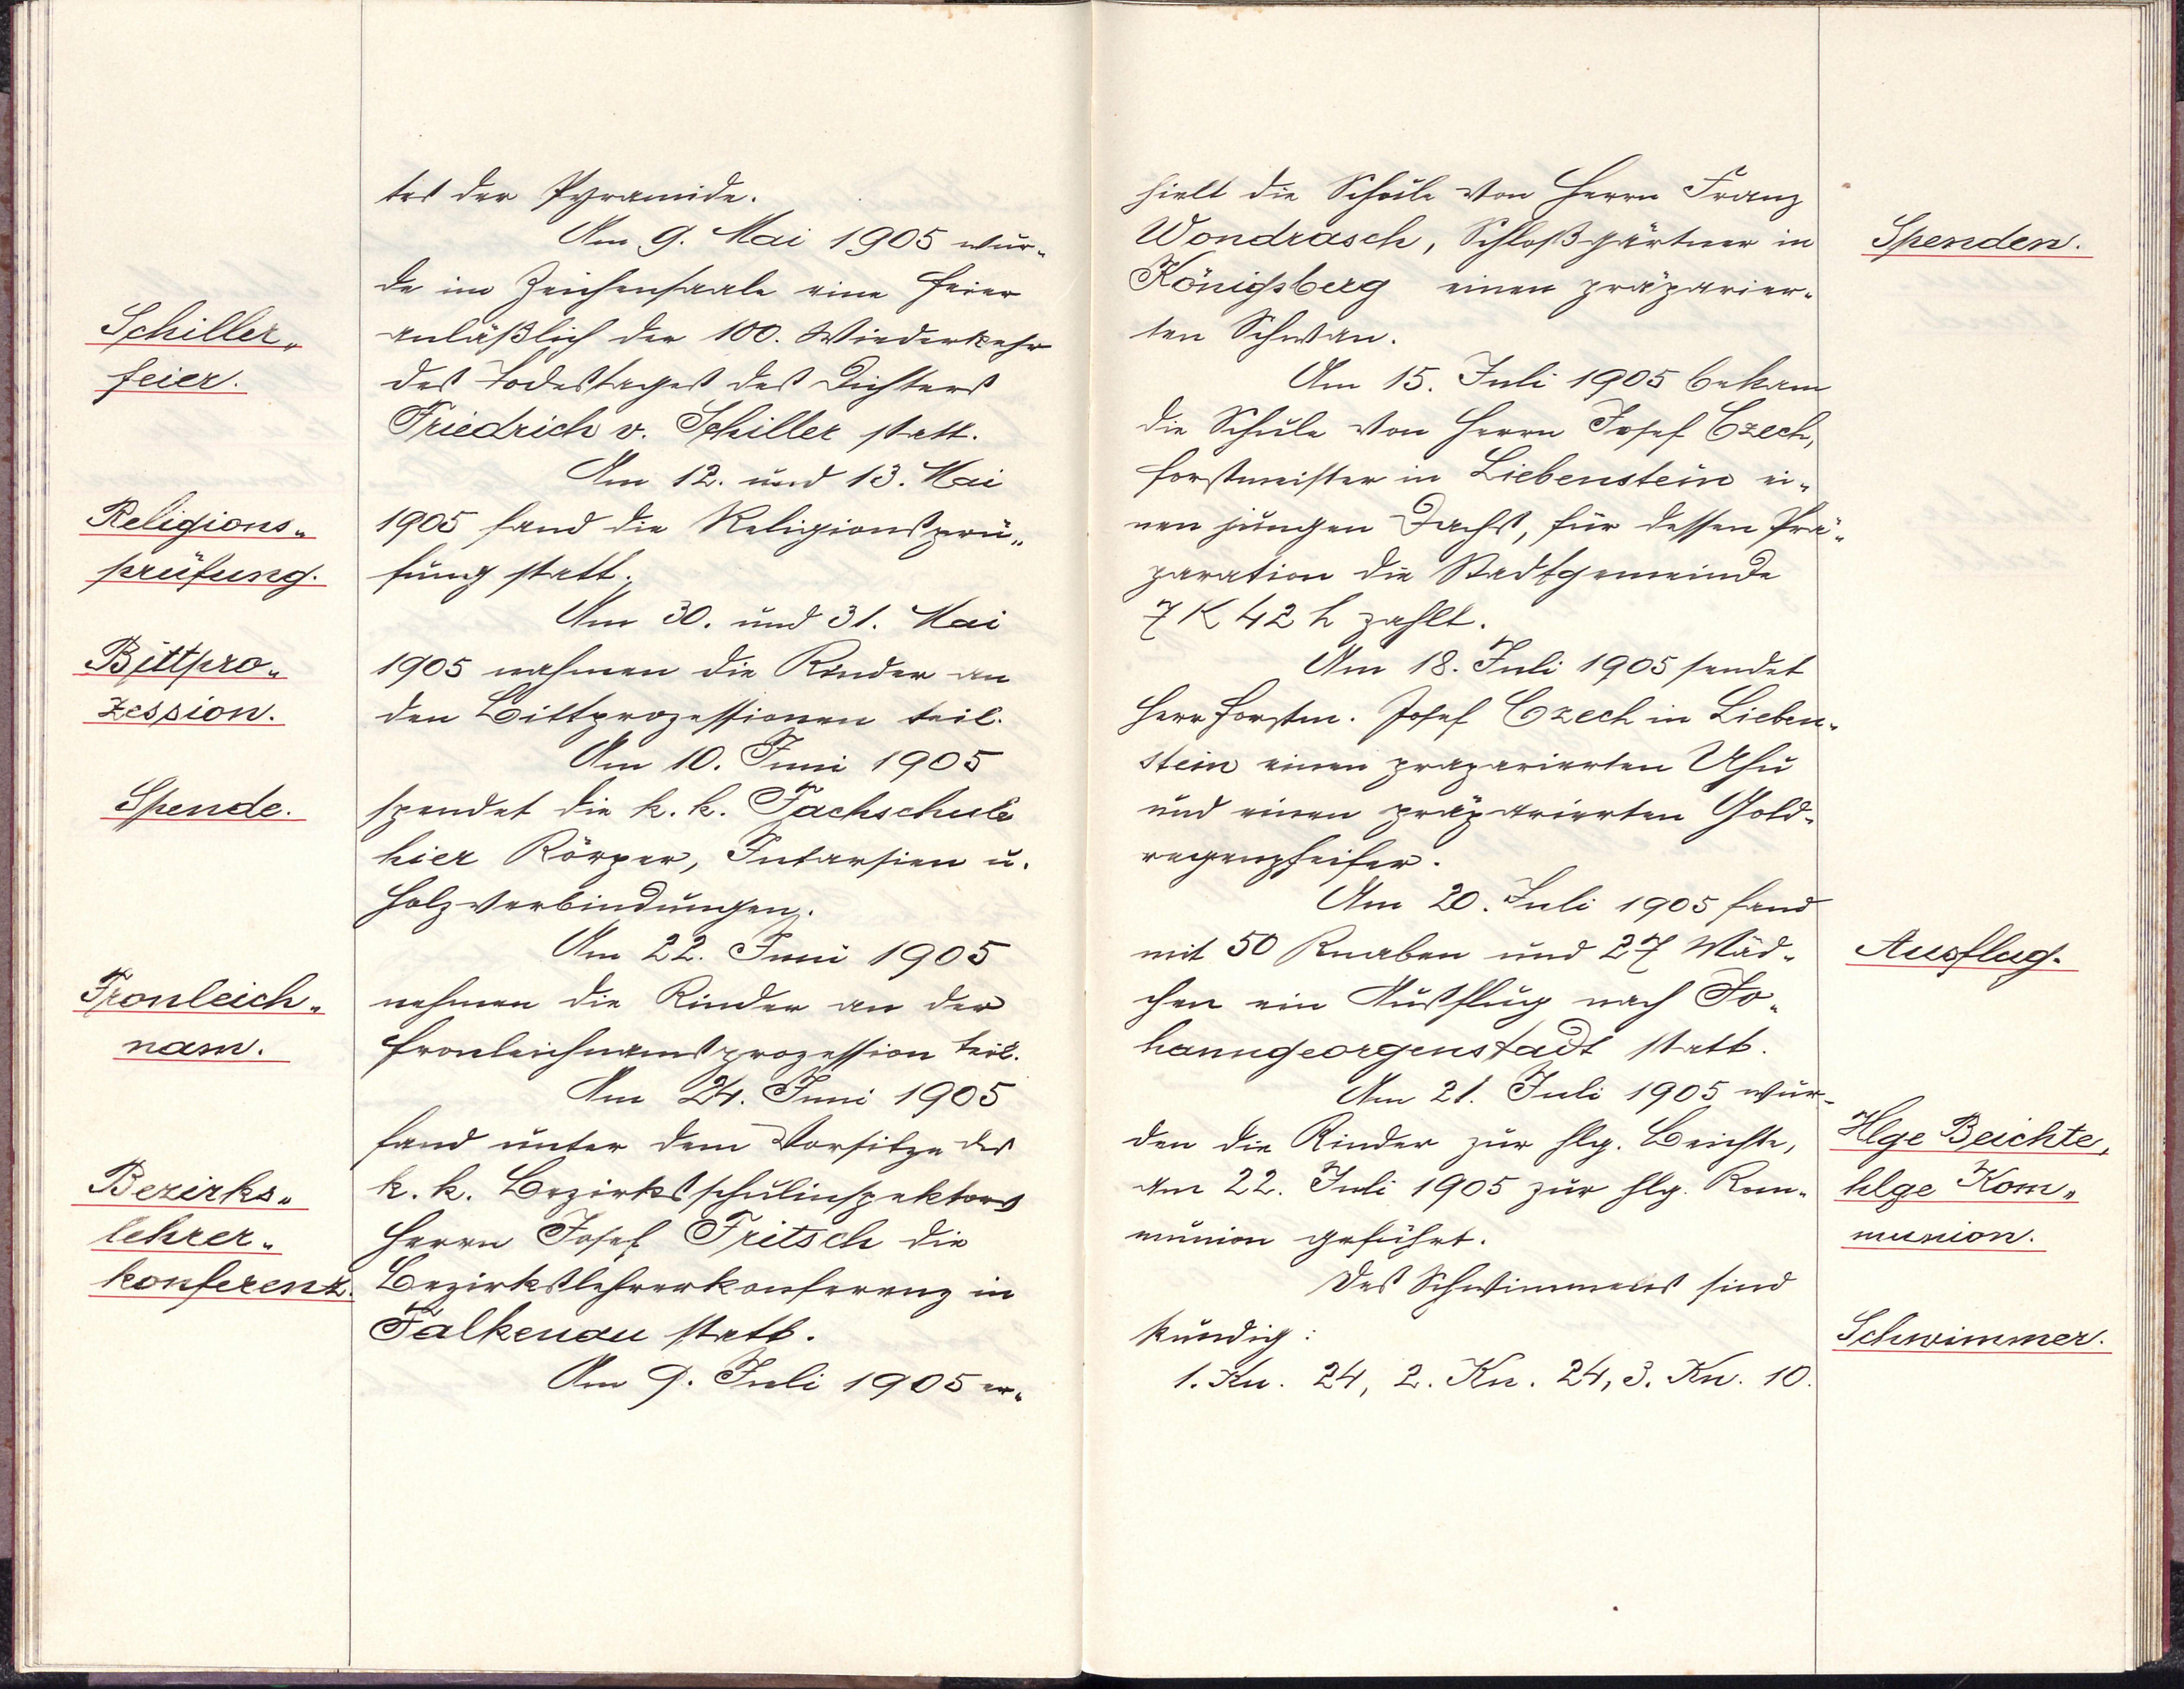 tet der Pyramide.
Am 9. Mai 1905 wur-
de im Zeichensaale eine Feier
Schiller-
anläßlich der 100. Wiederkehr
feier.
des Todestages des Dichters
Friedrich v. Schiller statt.
Am 12. und 13. Mai
Religions-
1905 fand die Religionsprü-
prüfung.
fung statt.
Am 30. und 31. Mai
Bittpro-
1905 nahmen die Kinder an
zession.
den Bittprozessionen teil.
Am 10. Juni 1905
Spende.
spendet die k. k. Fachschule
hier Körper, Intarsien u.
Holzverbindungen.
Am 22. Juni 1905
Fronleich-
nehmen die Kinder an der
nam.
Fronleichnamsprozession teil.
Am 24. Juni 1905
fand unter dem Vorsitze des
Bezirks-
k. k. Bezirksschulinspektors
lehrer-
Herrn Josef Fritsch die
konferenz.
Bezirkslehrerkonferenz in
Falkenau statt.
Am 9. Juli 1905 er-
hielt die Schule von Herrn Franz
Wondrasch, Schloßgärtner in
Spenden.
Königsberg einen präparier-
ten Schwan.
Am 15. Juli 1905 bekam
die Schule von Herrn Josef Czech,
Forstmeister in Liebenstein ei-
nen jungen Dachs, für dessen Prä-
paration die Stadtgemeinde
7 K 42 h zahlt.
Am 18. Juli 1905 sendet
Herr Forstm. Josef Czech in Lieben-
stein einen praparierten Uhu
und einen präparierten Gold-
regenpfeifer.
Am 20. Juli 1905 fand
mit 50 Knaben und 27 Mäd-
Ausflug.
chen ein Ausflug nach Jo-
hanngeorgenstadt statt.
Am 21. Juli 1905 wur-
den die Kinder zur hlg. Beichte,
Hlge Beichte,
am 22. Juli 1905 zur hlg. Kom-
hlge Kom-
munion geführt.
munion.
Des Schwimmens sind
kundig:
Schwimmer.
1. Kn. 24, 2. Kn. 24, 3. Kn. 10.